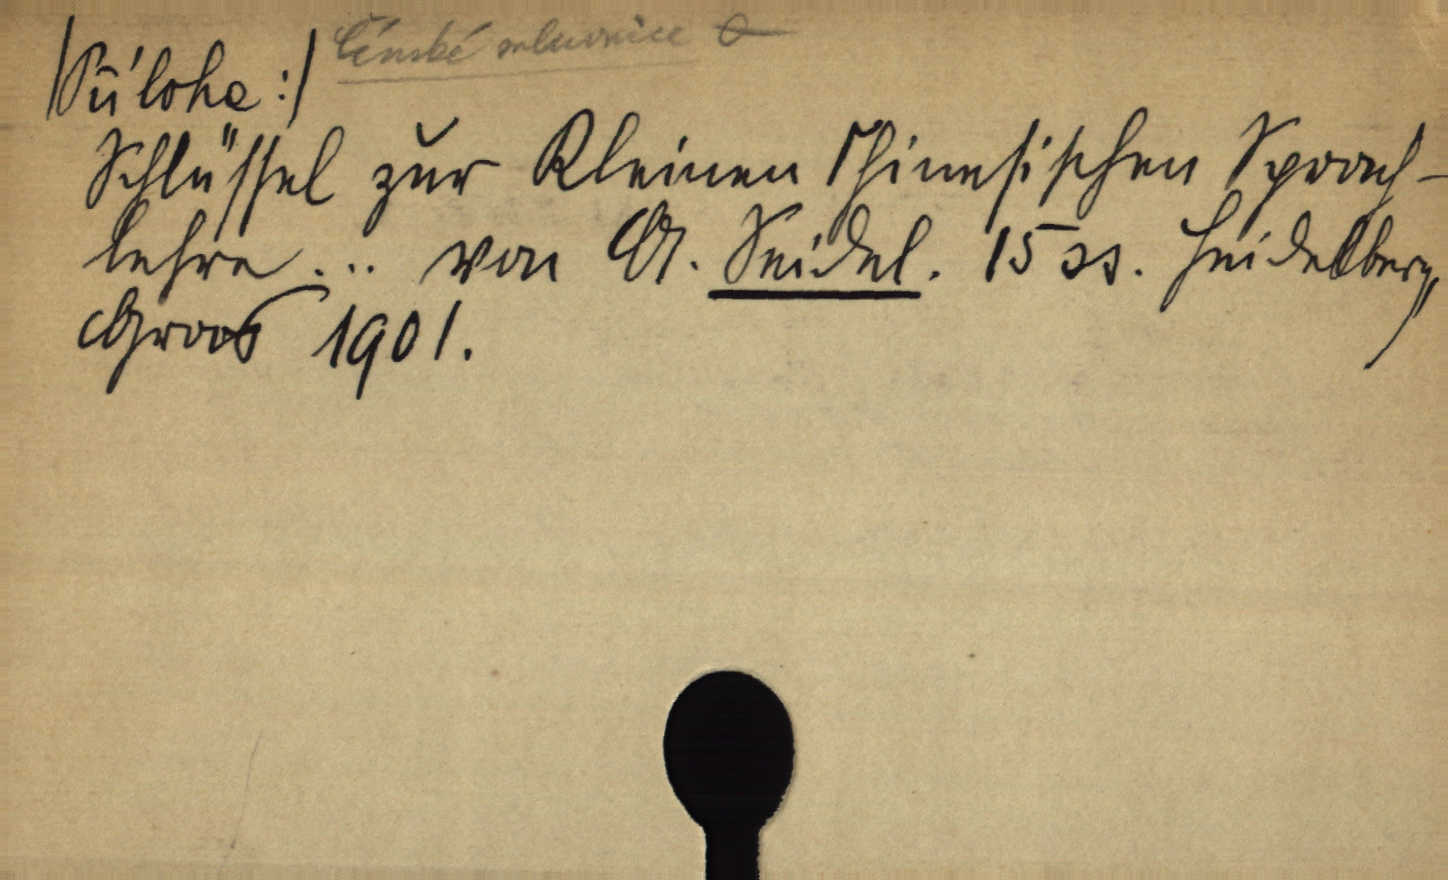 Čínské mluvnice
Schlüssel zur Kleinen Chinesischen Sprach-
lehre ... von A. Seidel. 15 ss. Heidelberg,
Groos 1901.